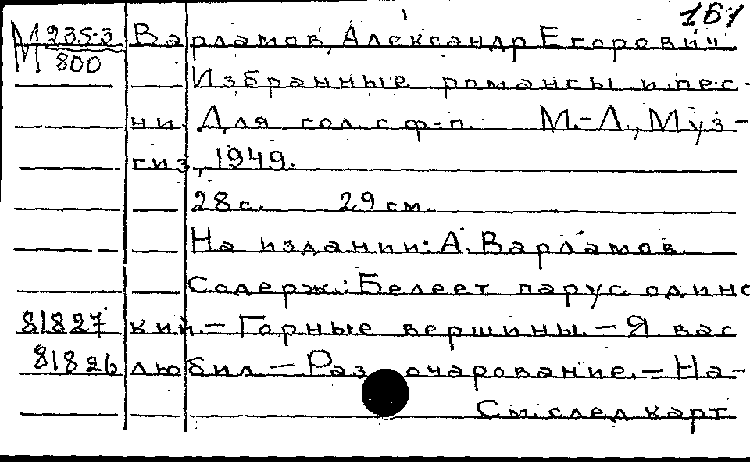 161
М 235-3 Варламов, Александр Егорович
М 800
Избранные романсы и пес-
ни. Для гол. с ф-п. М.-Л., Муз-
гиз, 1949.
28 с. 29 см.
На издании: А. Варламов
Содерж.: Белеет парус одино
81827 кий.- Горные вершины.- Я вас
81826 любил.- Раз очарование.- На-
См. след. карт